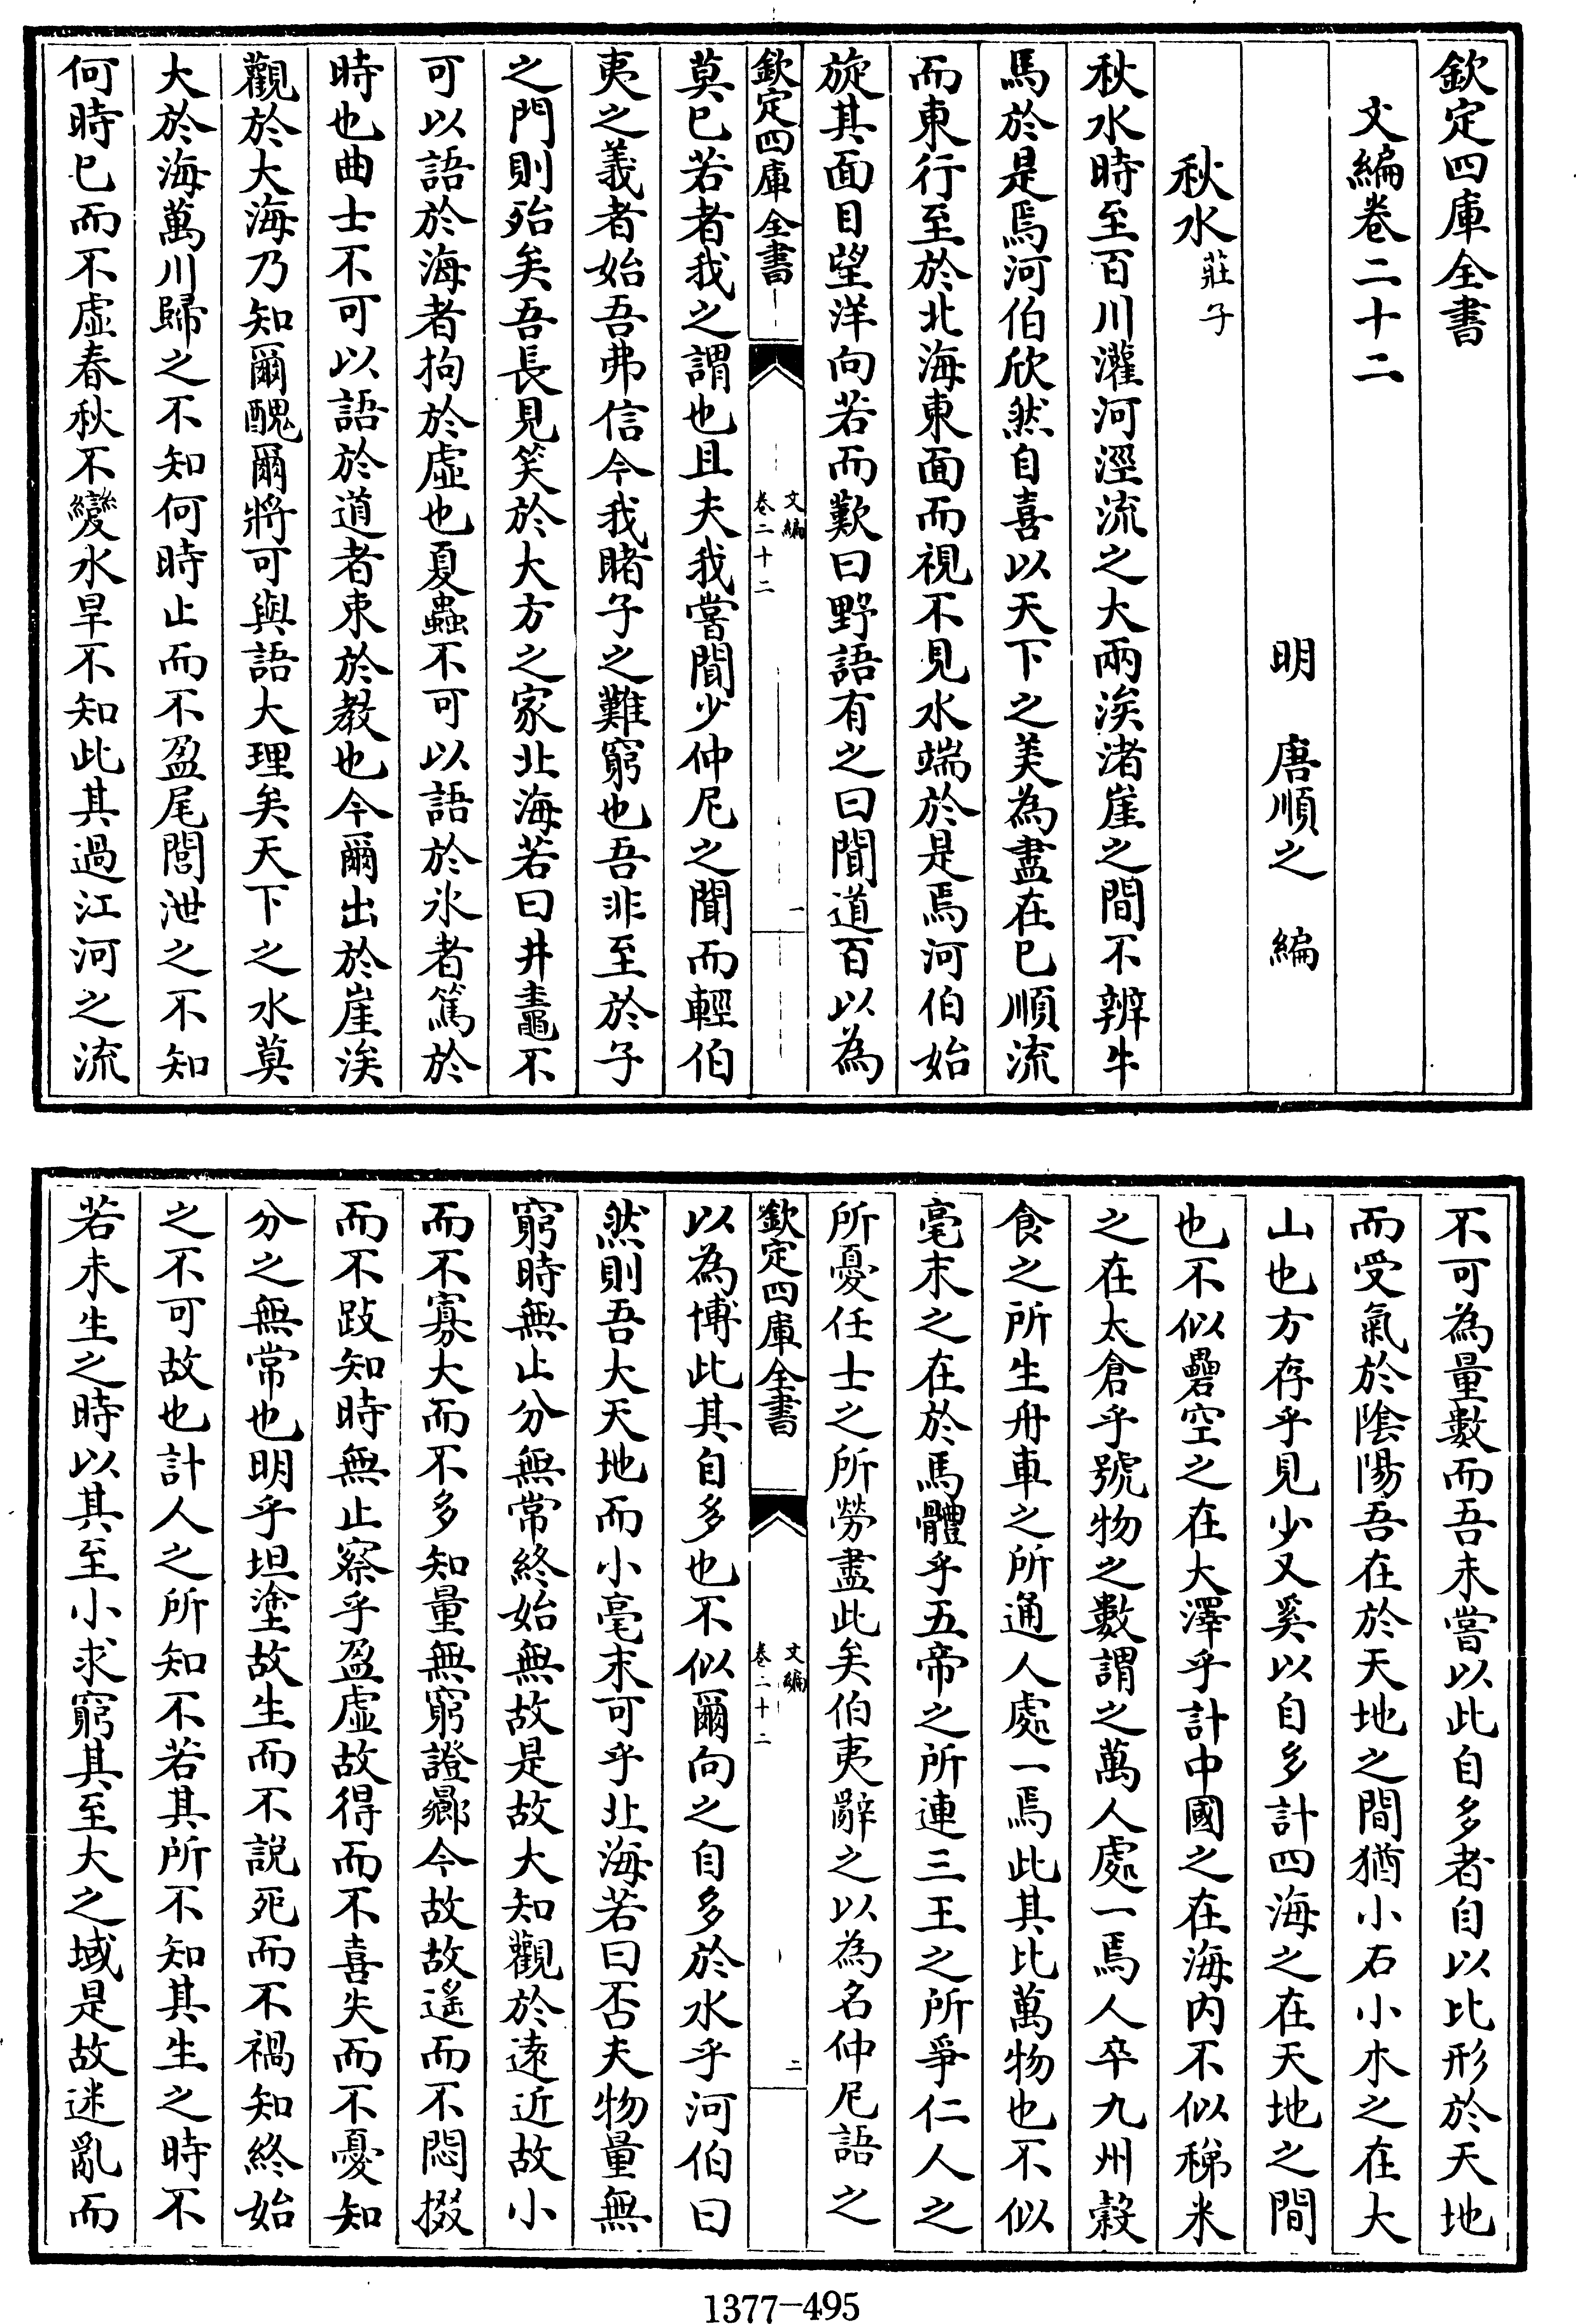 欽定四庫全書
文編卷二十二
明 唐順之 編
秋水莊子
秋水時至百川灌河涇流之大兩涘渚崖之間不辨牛
馬於是焉河伯欣然自喜以天下之美為盡在已順流
而東行至於北海東面而視不見水端於是焉河伯始
旋其面目望洋向若而歎曰野語有之曰聞道百以為
欽定四庫全書
文編
卷二十二
一
莫已若者我之謂也且夫我嘗聞少仲尼之聞而輕伯
夷之義者始吾弗信今我睹子之難窮也吾非至於子
之門則殆矣吾長見笑於大方之家北海若曰井鼃不
可以語於海者拘於虛也夏蟲不可以語於氷者篤於
時也曲士不可以語於道者束於教也今爾出於崖涘
觀於大海乃知爾醜爾將可與語大理矣天下之水莫
大於海萬川歸之不知何時止而不盈尾閭泄之不知
何時已而不虛春秋不變水旱不知此其過江河之流
不可為量數而吾未嘗以此自多者自以比形於天地
而受氣於陰陽吾在於天地之間猶小石小木之在大
山也方存乎見少又奚以自多計四海之在天地之間
也不似礨空之在大澤乎計中國之在海内不似稊米
之在太倉乎號物之數謂之萬人處一焉人卒九州穀
食之所生舟車之所通人處一焉此其比萬物也不似
毫末之在於馬體乎五帝之所連三王之所爭仁人之
所憂任士之所勞盡此矣伯夷辭之以為名仲尼語之
欽定四庫全書
文編
卷二十二
二
以為博此其自多也不似爾向之自多於水乎河伯曰
然則吾大天地而小毫末可乎北海若曰否夫物量無
窮時無止分無常終始無故是故大知觀於遠近故小
而不寡大而不多知量無窮證曏今故故遙而不悶掇
而不跂知時無止察乎盈虛故得而不喜失而不憂知
分之無常也明乎坦塗故生而不說死而不禍知終始
之不可故也計人之所知不若其所不知其生之時不
若未生之時以其至小求窮其至大之域是故迷亂而
1377-495